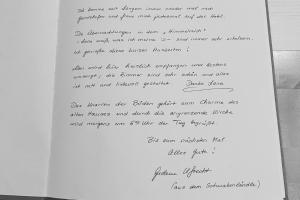 Ich komme seit Jahren immer wieder mal nach
und freue mich jedesmal auf das Hotel.
Die Übernachtungen in dem "Himmelreich"
- das muß, was ich meine :) - sind immer sehr erholsam.
Ich genieße diese kurzen Auszeiten!
Man wird hier herzlich empfangen und bestens
umsorgt; die Zimmer sind sehr schön und alles
ist nett und liebevoll gestaltet. Danke dafür
Das Knarren der Böden gehört zum Charme des
alten Hauses und durch die angrenzende Kirche
wird morgens um 6 Uhr der Tag begrüßt.
Bis zum nächsten Mal
Alles Gute!
(aus dem Schwabenländle)